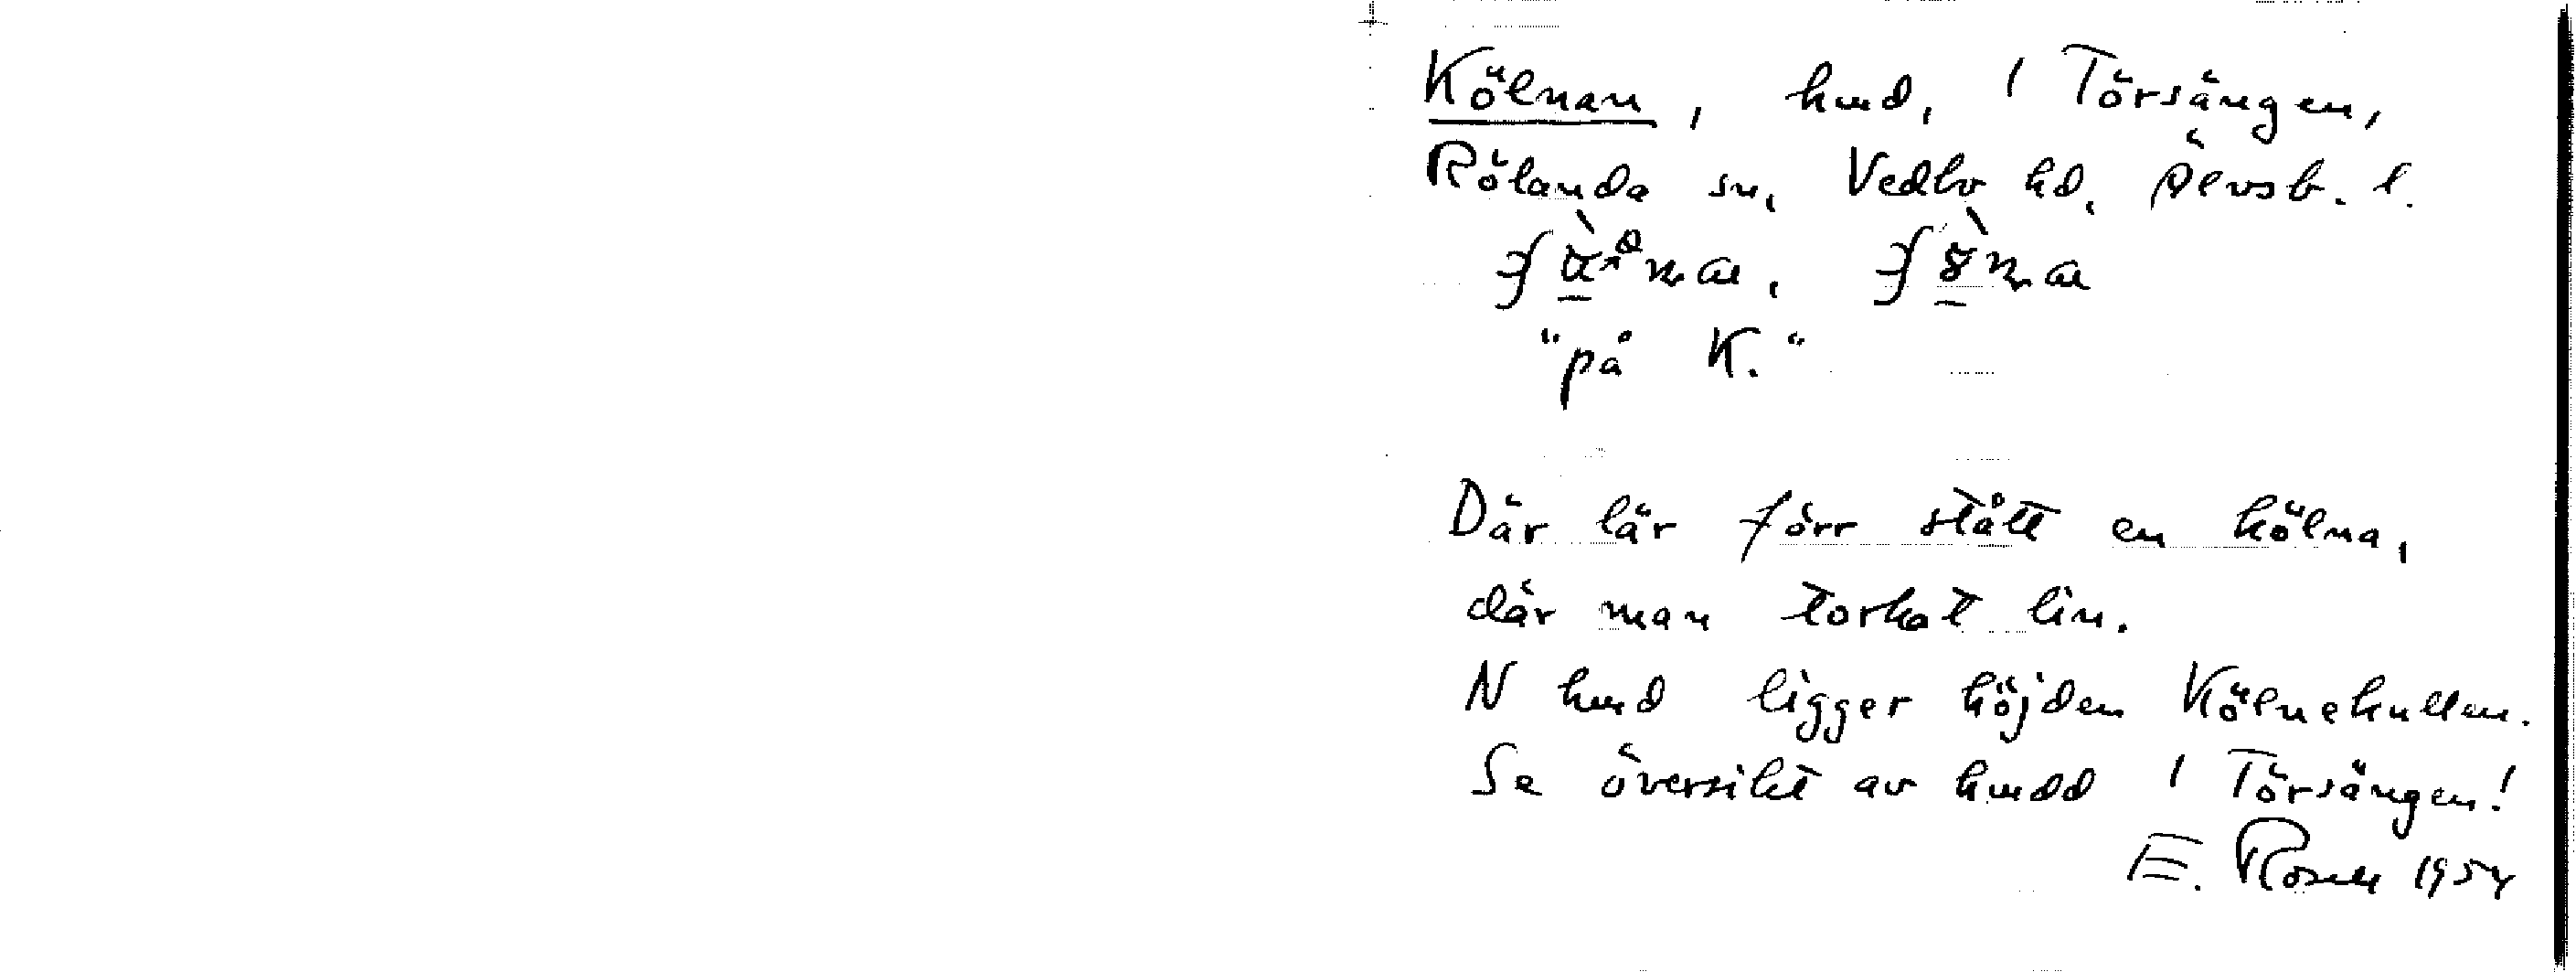 Kölnan, hmd, 1 Törsängen,
Rölanda sn, Vedbo hd, Älvsb. l.
"på K."
Där lär förr stått en kölna,
där man torkat lin.
N hmd ligger höjden Kölnekullen.
Se översikt av hmdd 1 Törsängen!
E. Rosell 1954